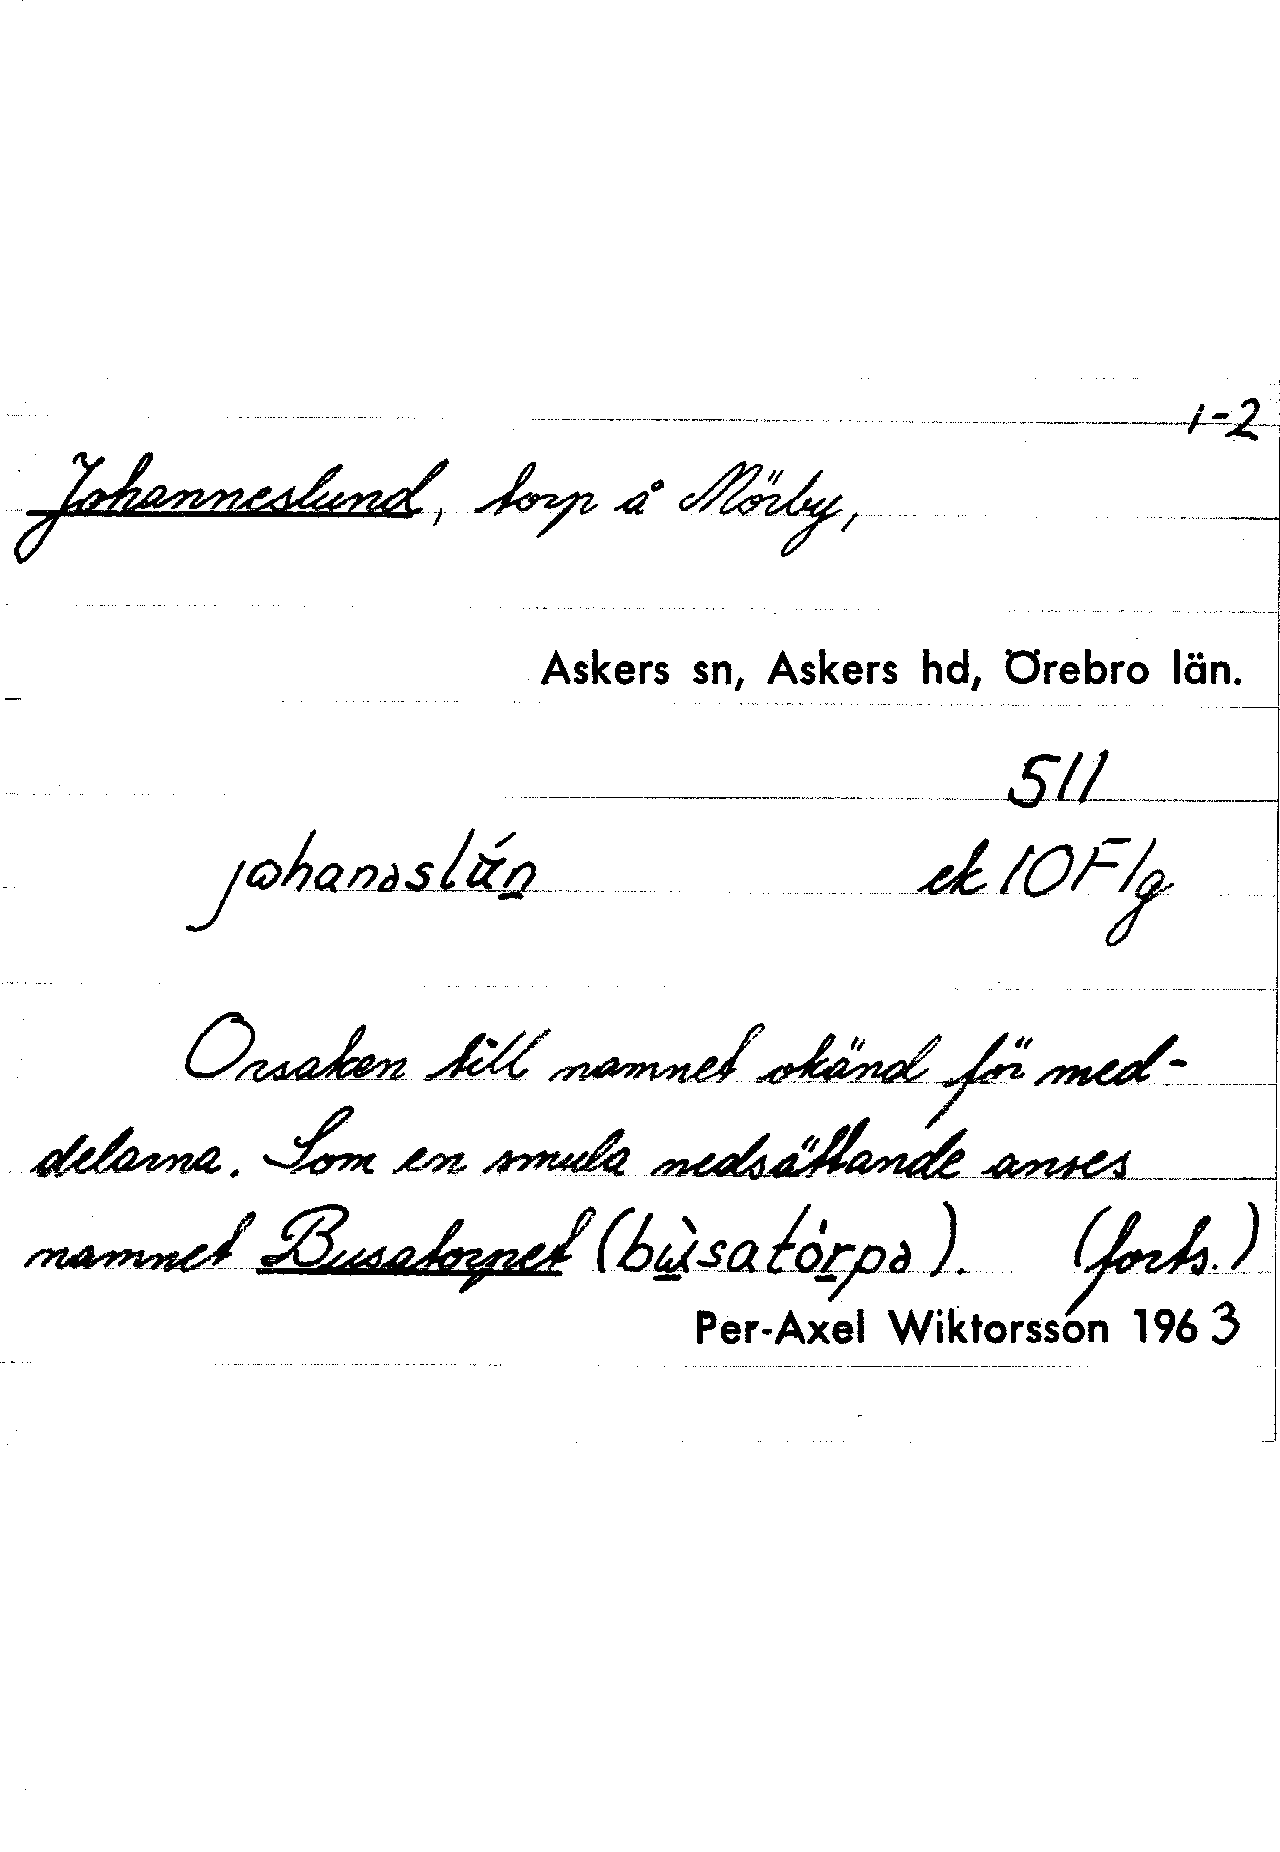 1-2
Johanneslund, torp å Mörby,
Askers sn, Askers hd, Örebro län.
511
johanəslún
ek 10F1g
Orsaken till namnet okänd för med-
delarna. Som en smula nedsättande anses
namnet Busatorpet (bùsatórpə). (forts.)
Per-Axel Wiktorsson 1963